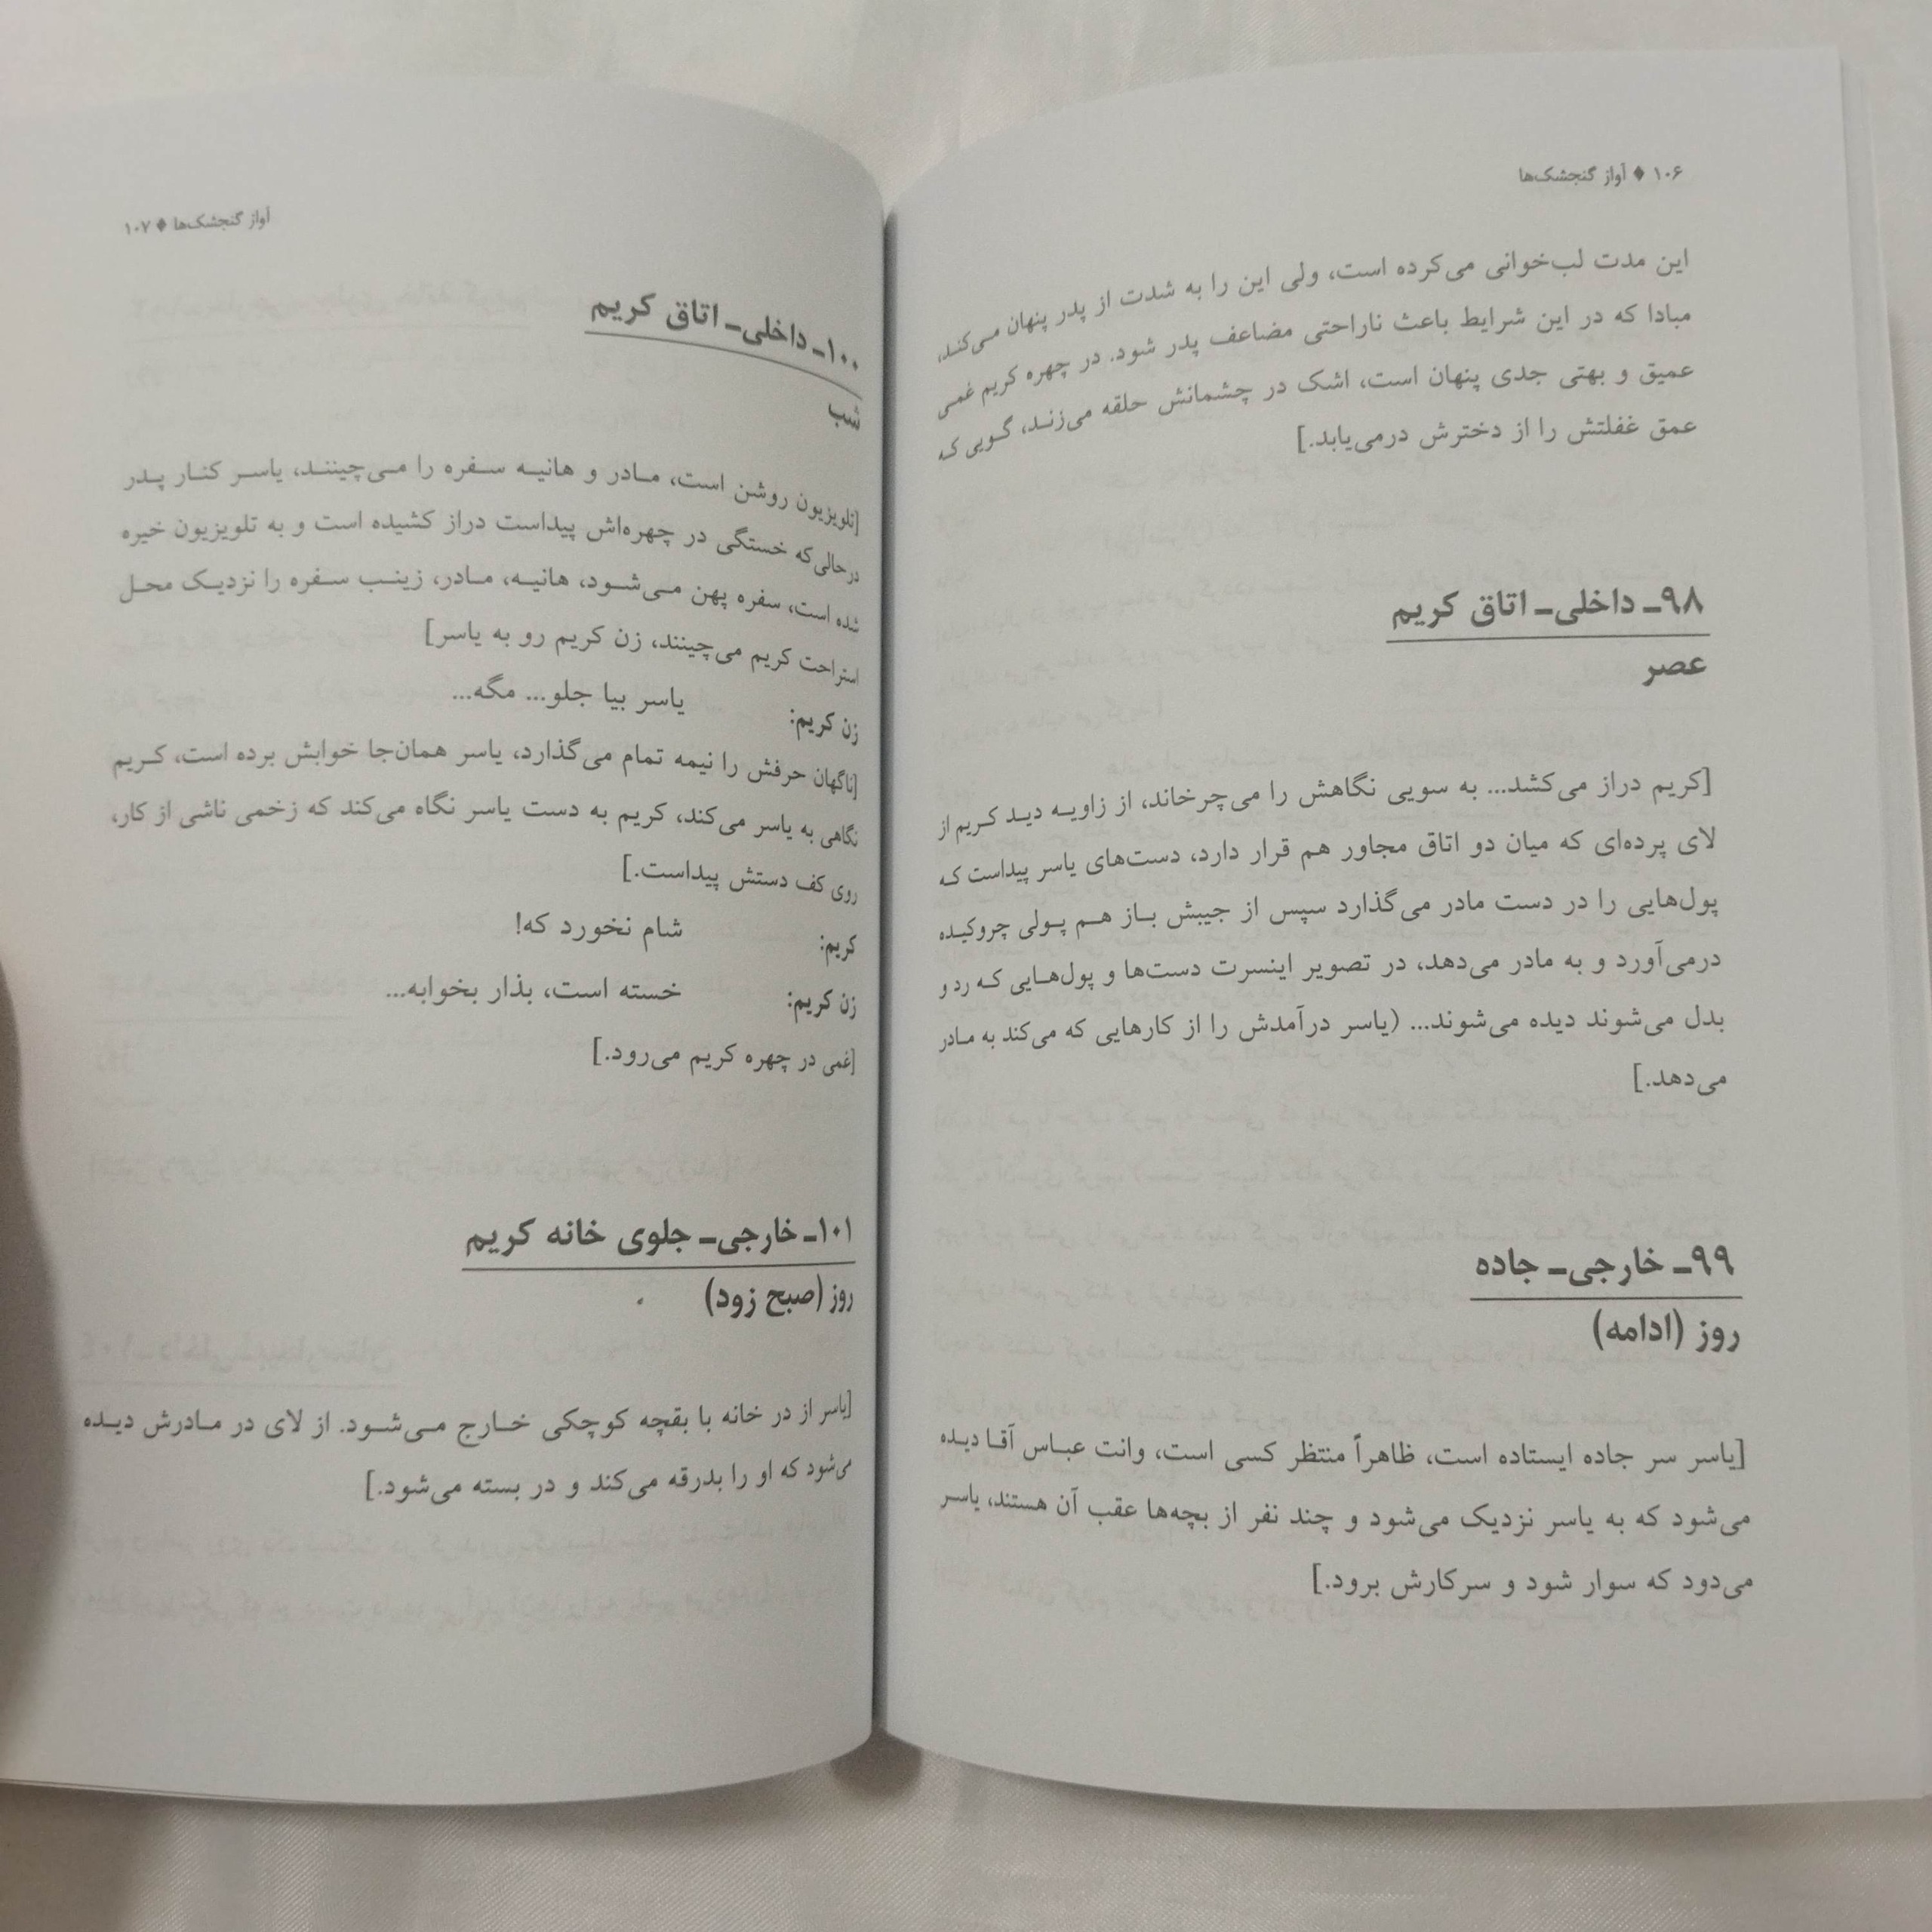 ۱۰۶ ♦ آواز گنجشک‌ها
این مدت لب‌خوانی می‌کرده است، ولی این را به شدت از پدر پنهان می‌کند،
مبادا که در این شرایط باعث ناراحتی مضاعف پدر شود. در چهره کریم غمی
عمیق و بهتی جدی پنهان است، اشک در چشمانش حلقه می‌زند، گویی که
عمق غفلتش را از دخترش درمی‌یابد.]
۹۸ـ داخلی ـ اتاق کریم
عصر
[کریم دراز می‌کشد... به سویی نگاهش را می‌چرخاند، از زاویه دید کریم از
لای پرده‌ای که میان دو اتاق مجاور هم قرار دارد، دست‌های یاسر پیداست که
پول‌هایی را در دست مادر می‌گذارد سپس از جیبش باز هم پولی چروکیده
درمی‌آورد و به مادر می‌دهد، در تصویر اینسرت دست‌ها و پول‌هایی که رد و
بدل می‌شوند دیده می‌شوند... (یاسر درآمدش را از کارهایی که می‌کند به مادر
می‌دهد.]
۹۹ـ خارجی ـ جاده
روز (ادامه)
[یاسر سر جاده ایستاده است، ظاهراً منتظر کسی است، وانت عباس آقا دیده
می‌شود که به یاسر نزدیک می‌شود و چند نفر از بچه‌ها عقب آن هستند، یاسر
می‌دود که سوار شود و سرکارش برود.]
آواز گنجشک‌ها ♦ ۱۰۷
۱۰۰ـ داخلی ـ اتاق کریم
شب
[تلویزیون روشن است، مادر و هانیه سفره را می‌چینند، یاسر کنار پدر
درحالی‌که خستگی در چهره‌اش پیداست دراز کشیده است و به تلویزیون خیره
شده است، سفره پهن می‌شود، هانیه، مادر، زینب سفره را نزدیک محل
استراحت کریم می‌چینند، زن کریم رو به یاسر]
زن کریم: یاسر بیا جلو... مگه...
[ناگهان حرفش را نیمه تمام می‌گذارد، یاسر همان‌جا خوابش برده است، کریم
نگاهی به یاسر می‌کند، کریم به دست یاسر نگاه می‌کند که زخمی ناشی از کار،
روی کف دستش پیداست.]
کریم: شام نخورد که!
زن کریم: خسته است، بذار بخوابه...
[غمی در چهره کریم می‌رود.]
۱۰۱ـ خارجی ـ جلوی خانه کریم
روز (صبح زود)
[یاسر از در خانه با بقچه کوچکی خارج می‌شود. از لای در مادرش دیده
می‌شود که او را بدرقه می‌کند و در بسته می‌شود.]